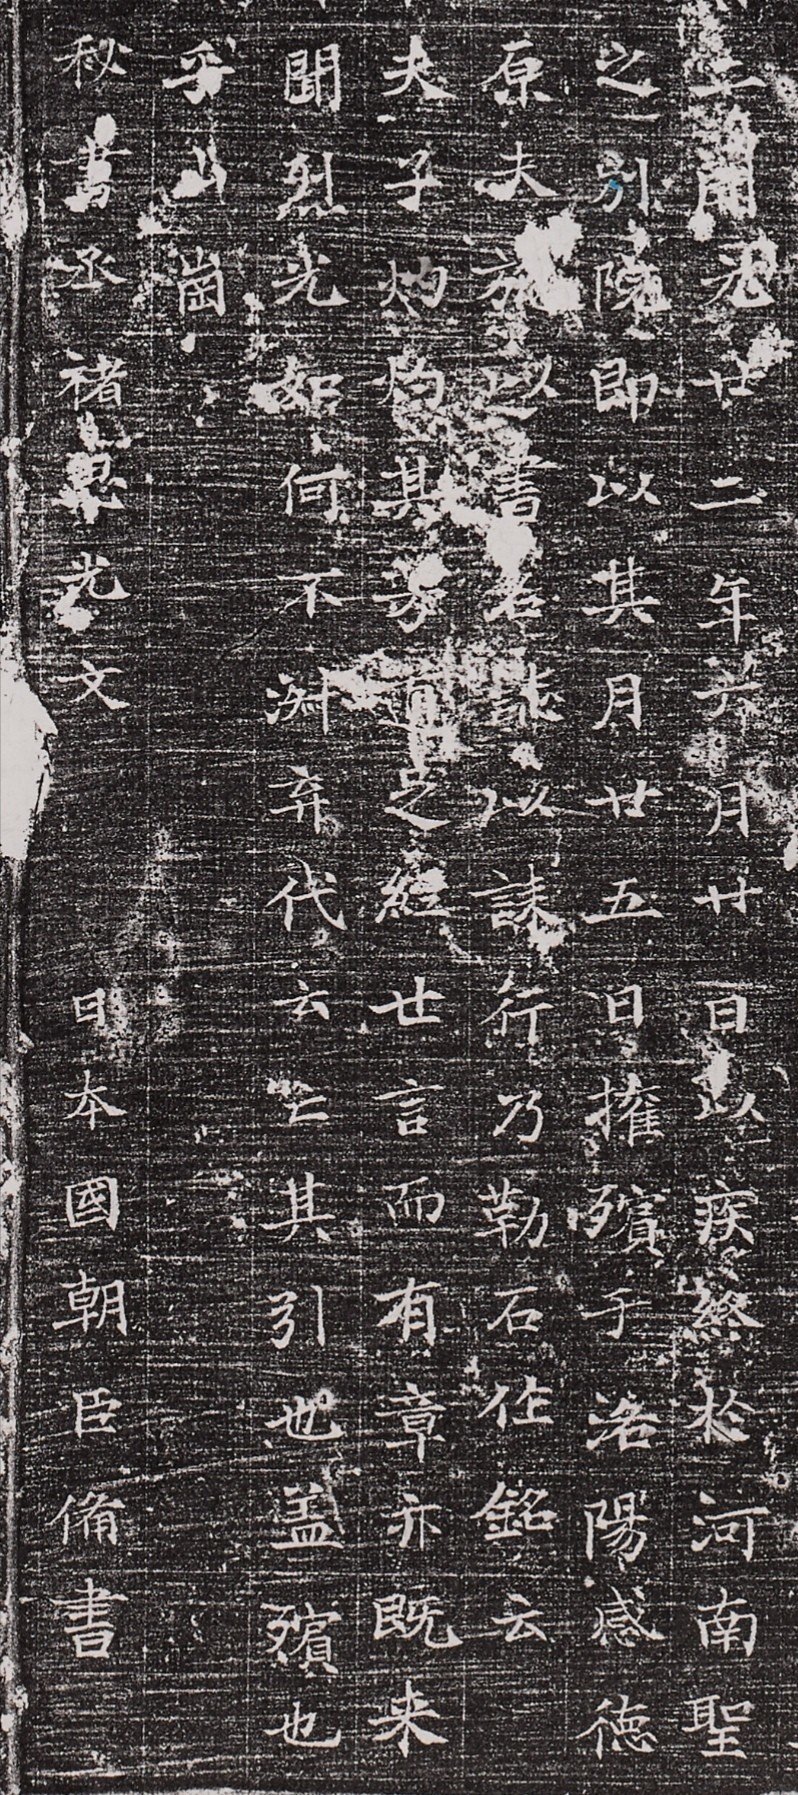 二開元廿二年六月廿日以疾終於河南聖
之別院即以其月廿五日擁殯于洛陽感德
原夫旌以書名誌以誄行乃勒石作銘云
夫子灼灼其芳道之經世言而有章亦既来
聞烈光如何不淑弃代云亡其引也盖殯也
乎山崗
秘書丞褚思光文 日本國朝臣備書